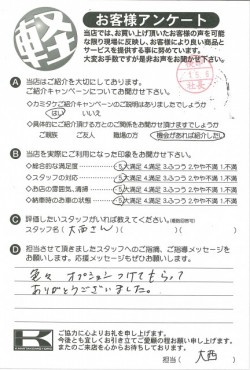 軽
お客様アンケート
当店では、お買い上げ頂いたお客様の声を可能
な限り現場に反映し、お客様により良い商品と
サービスを提供する事に努めています。
大変お手数ですが是非お声をお聞かせ下さい。
社長
A 当店はご紹介を大切にしております。
ご紹介キャンペーンについてお聞かせ下さい。
◇カミタケご紹介キャンペーンのご説明はありましたでしょうか
はい いいえ
◇具体的にご紹介頂ける方とのご関係をお聞かせ頂けますでしょうか
ご親族 ご友人 職場の方 機会があれば紹介したい
B 当店を実際にご利用になった印象をお聞かせ下さい。
◇総合的な満足度 5.大満足 4.満足 3.ふつう 2.やや不満 1.不満
◇スタッフの対応 5.大満足 4.満足 3.ふつう 2.やや不満 1.不満
◇お店の雰囲気、清掃 5.大満足 4.満足 3.ふつう 2.やや不満 1.不満
◇納車時のお車の状態 5.大満足 4.満足 3.ふつう 2.やや不満 1.不満
C 評価したいスタッフがいれば教えてください。(複数回答可)
スタッフ名( 大西さん )( )( )
D 担当させて頂きましたスタッフへのご指摘、ご指導メッセージを
お願いします。応援メッセージもぜひお願いします。
色々 オプション つけてもらって
ありがとうございました。
K
ご協力に心よりお礼を申し上げます。
今後とも宜しくお引き立てご愛顧の程お願い申し上げます。
またのご来店を心からお待ちしております。
担当( 大西 )